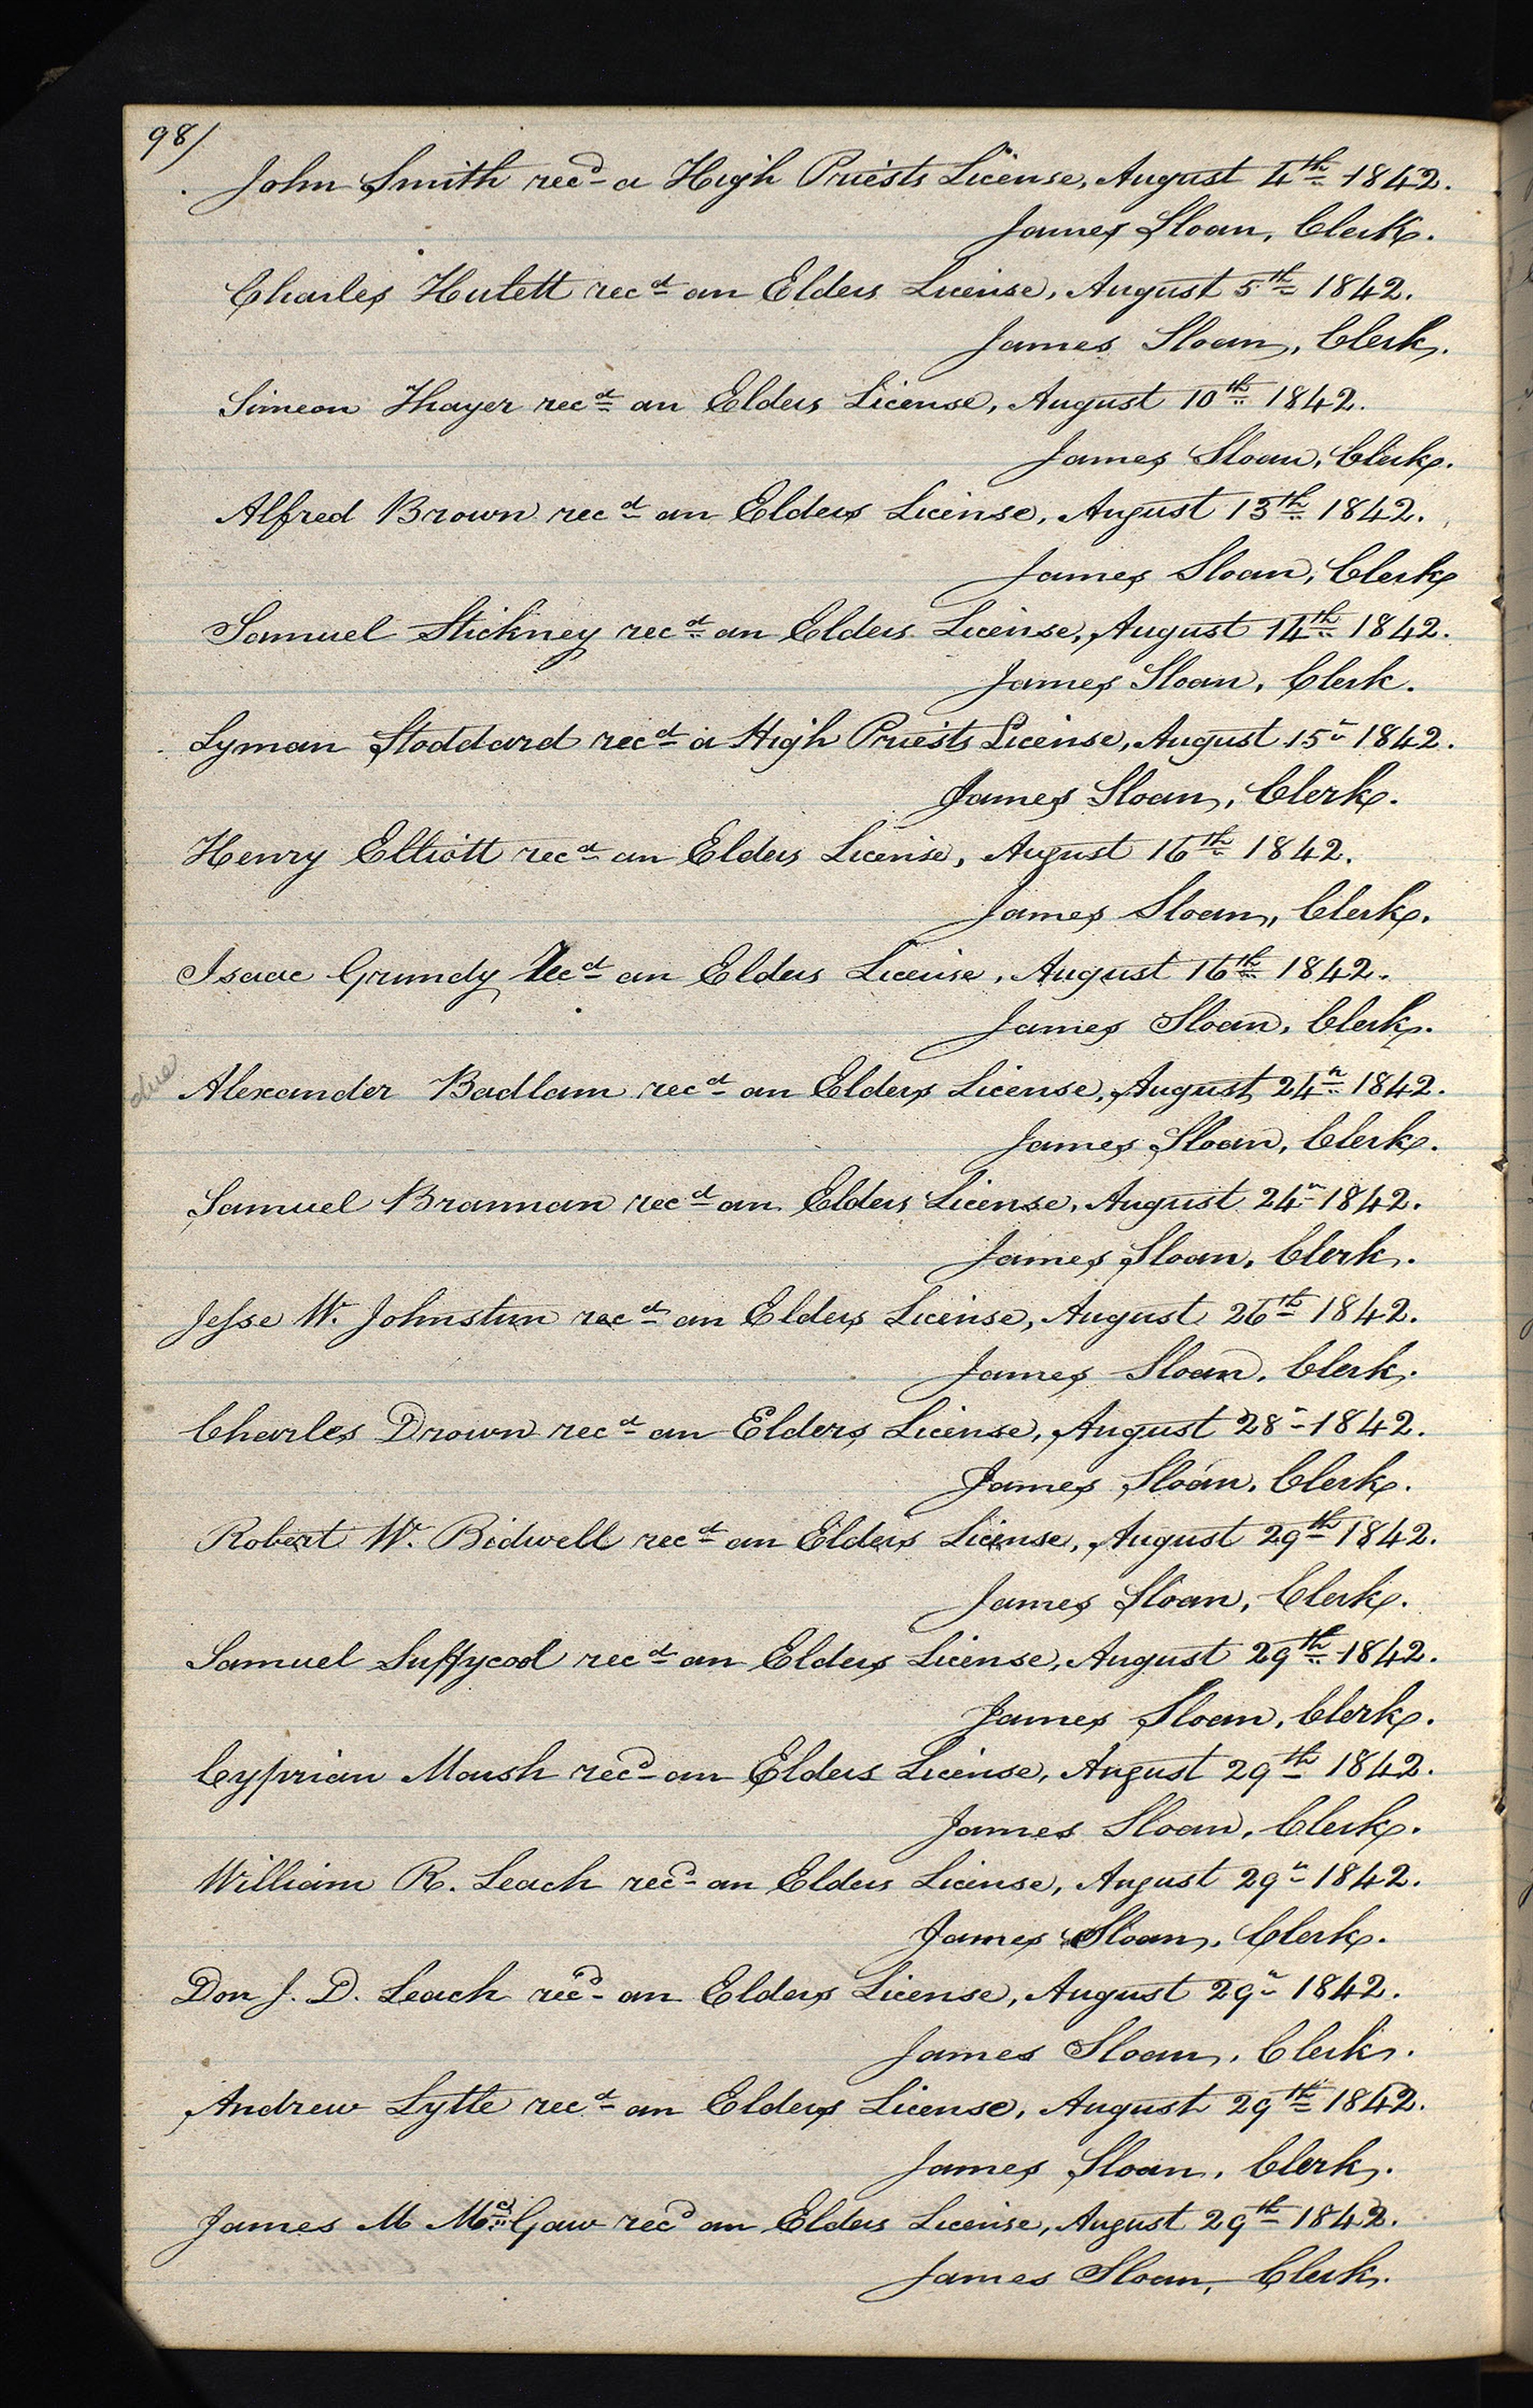 98/
John Smith recd a High Priests License, August 4th 1842.
James Sloan, Clerk.
Charles Hulett recd an Elders License, August 5th 1842.
James Sloan, Clerk.
Simeon Thayer recd an Elders License, August 10th 1842.
James Sloan, Clerk.
Alfred Brown recd an Elders License, August 13th 1842.
James Sloan, Clerk
Samuel Stickney recd an Elders License, August 14th 1842.
James Sloan, Clerk.
Lyman Stoddard recd a High Priests License, August 15th 1842.
James Sloan, Clerk.
Henry Elliott recd an Elders License, August 16th 1842.
James Sloan, Clerk.
Isaac Grundy recd an Elders License, August 16th 1842.
James Sloan, Clerk.
due Alexander Badlam recd an Elders License, August 24th 1842.
James Sloan, Clerk.
Samuel Brannan recd an Elders License, August 24th 1842.
James Sloan, Clerk.
Jesse W. Johnstun recd an Elders License, August 26th 1842.
James Sloan, Clerk.
Charles Drown recd an Elders License, August 28th 1842.
James Sloan, Clerk.
Robert W. Bidwell recd an Elders License, August 29th 1842.
James Sloan, Clerk.
Samuel Suffycool recd an Elders License, August 29th 1842.
James Sloan, Clerk.
Cyprian Marsh recd an Elders License, August 29th 1842.
James Sloan, Clerk.
William R. Leach recd an Elders License, August 29th 1842.
James Sloan, Clerk.
Don J. D. Leach recd an Elders License, August 29th 1842.
James Sloan, Clerk.
Andrew Lytle recd an Elders License, August 29th 1842.
James Sloan, Clerk.
James M McGaw recd an Elders License, August 29th 1842.
James Sloan, Clerk.